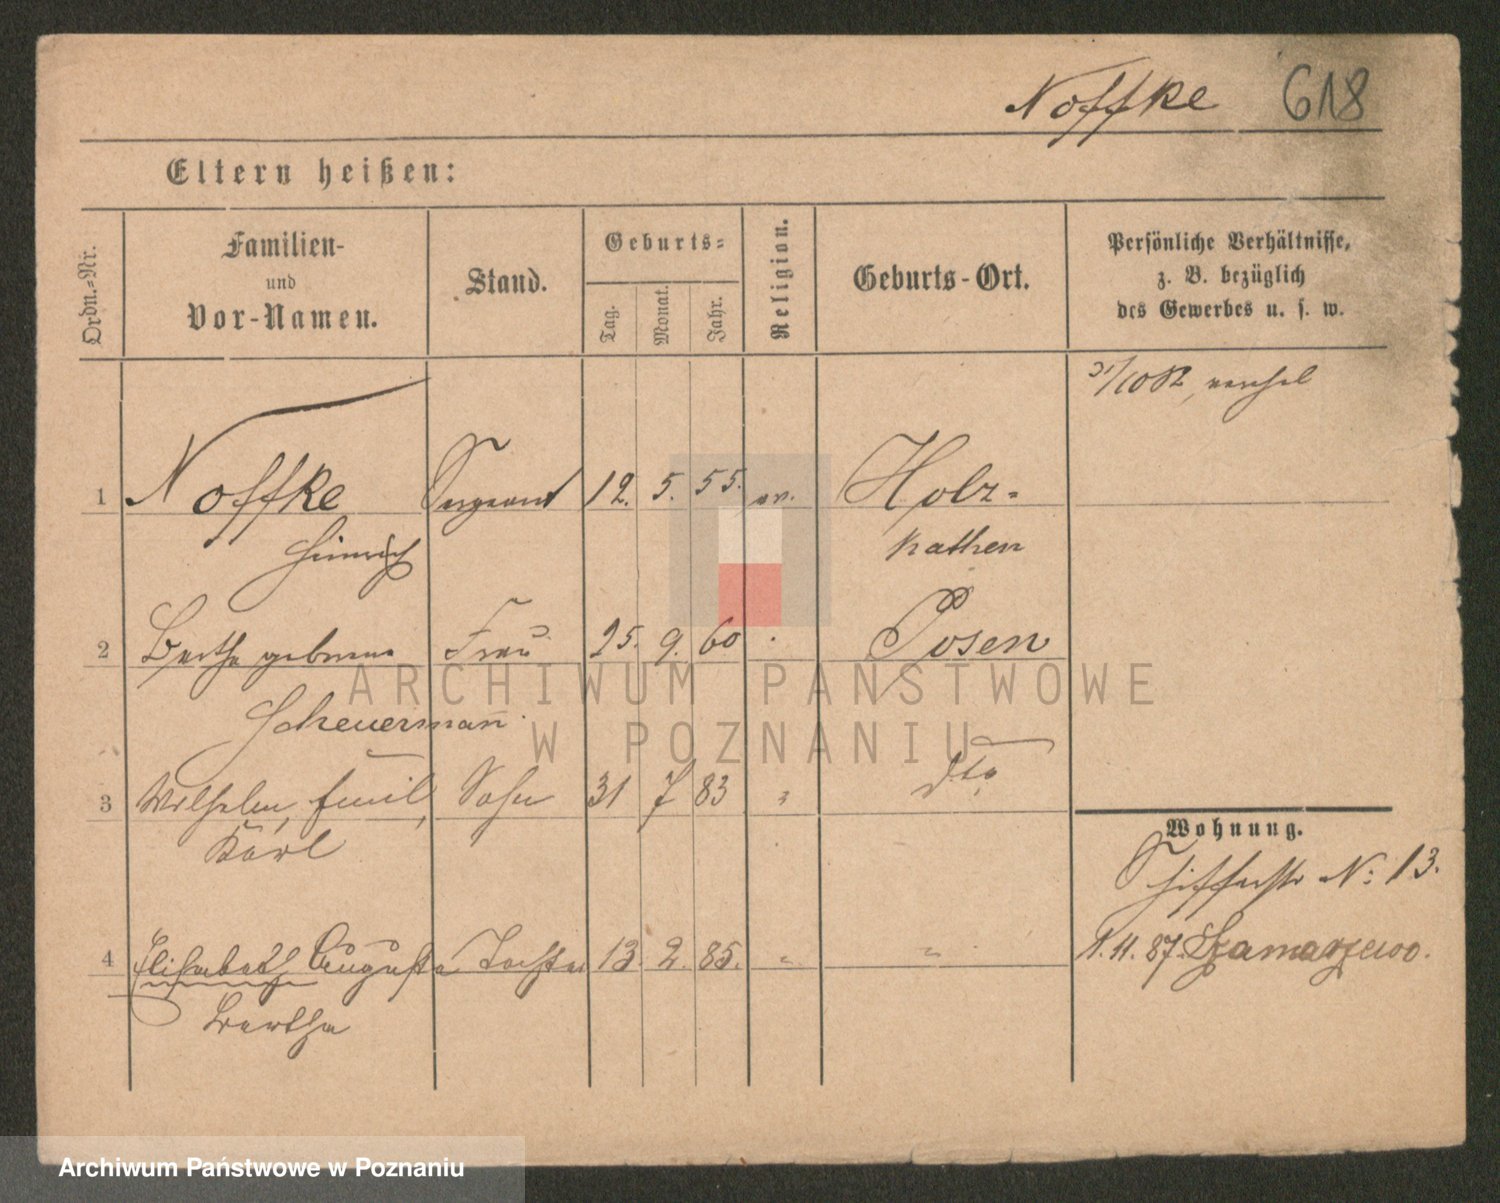 Noffke 618
Eltern heißen:
Ordn.-Nr.
Familien-
und
Vor-Namen.
Stand.
Geburts-
Tag.
Monat.
Jahr.
Religion.
Geburts-Ort.
Persönliche Verhältnisse,
z. B. bezüglich
des Gewerbes u. s. w.
1 Noffke Sergeant 12. 5. 55. ev. Holz-
Heinrich kathen
2 Bertha geborene Frau 25. 9. 60 Posen
Scheuermann
3 Wilhelm, Emil, Sohn 31 7 83 " dto
Karl
Wohnung.
Schifferstr No: 13.
4 Elisabeth Auguste Tochter 13. 2. 85. " "
Bertha
1. 11. 87.
ARCHIWUM PAŃSTWOWE
W POZNANIU
Archiwum Państwowe w Poznaniu